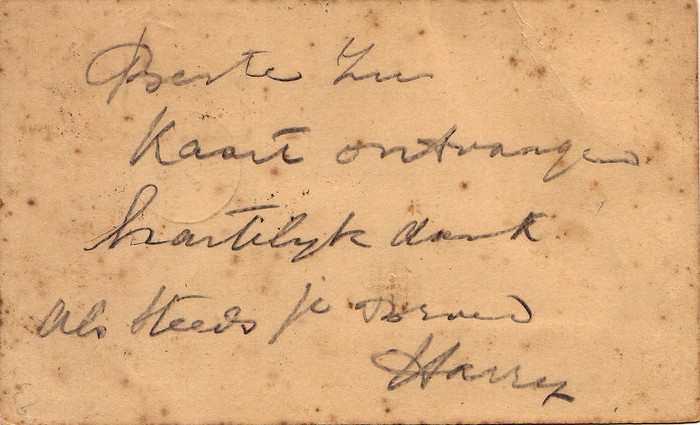 Beste Zus
Kaart ontvangen
hartelyk dank.
Als steeds je Broer
Harry